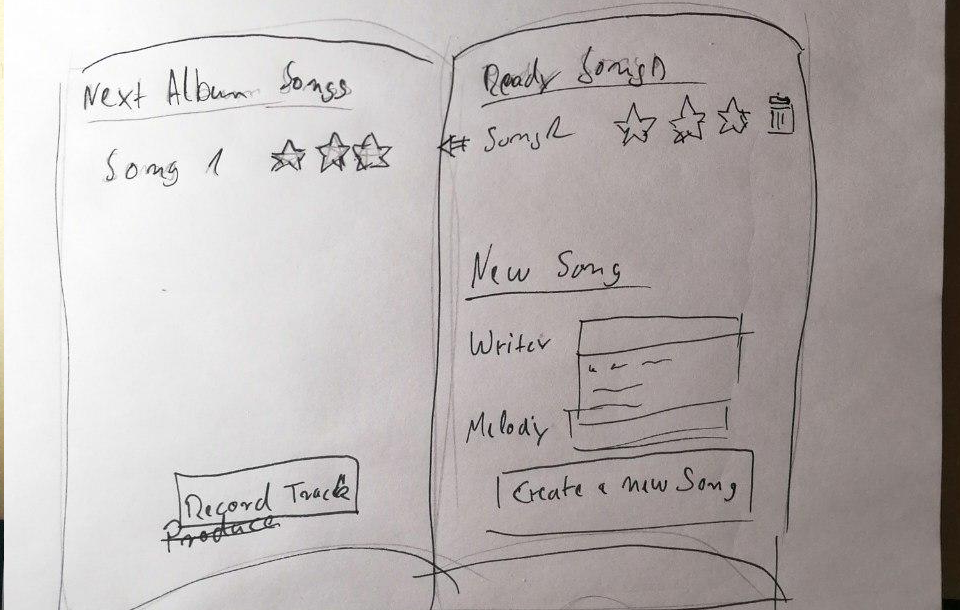 Next Album Songs
Song 1
Record Track
Produce
Ready Songs
Song 2
New Song
Writer
Melody
Create a new Song